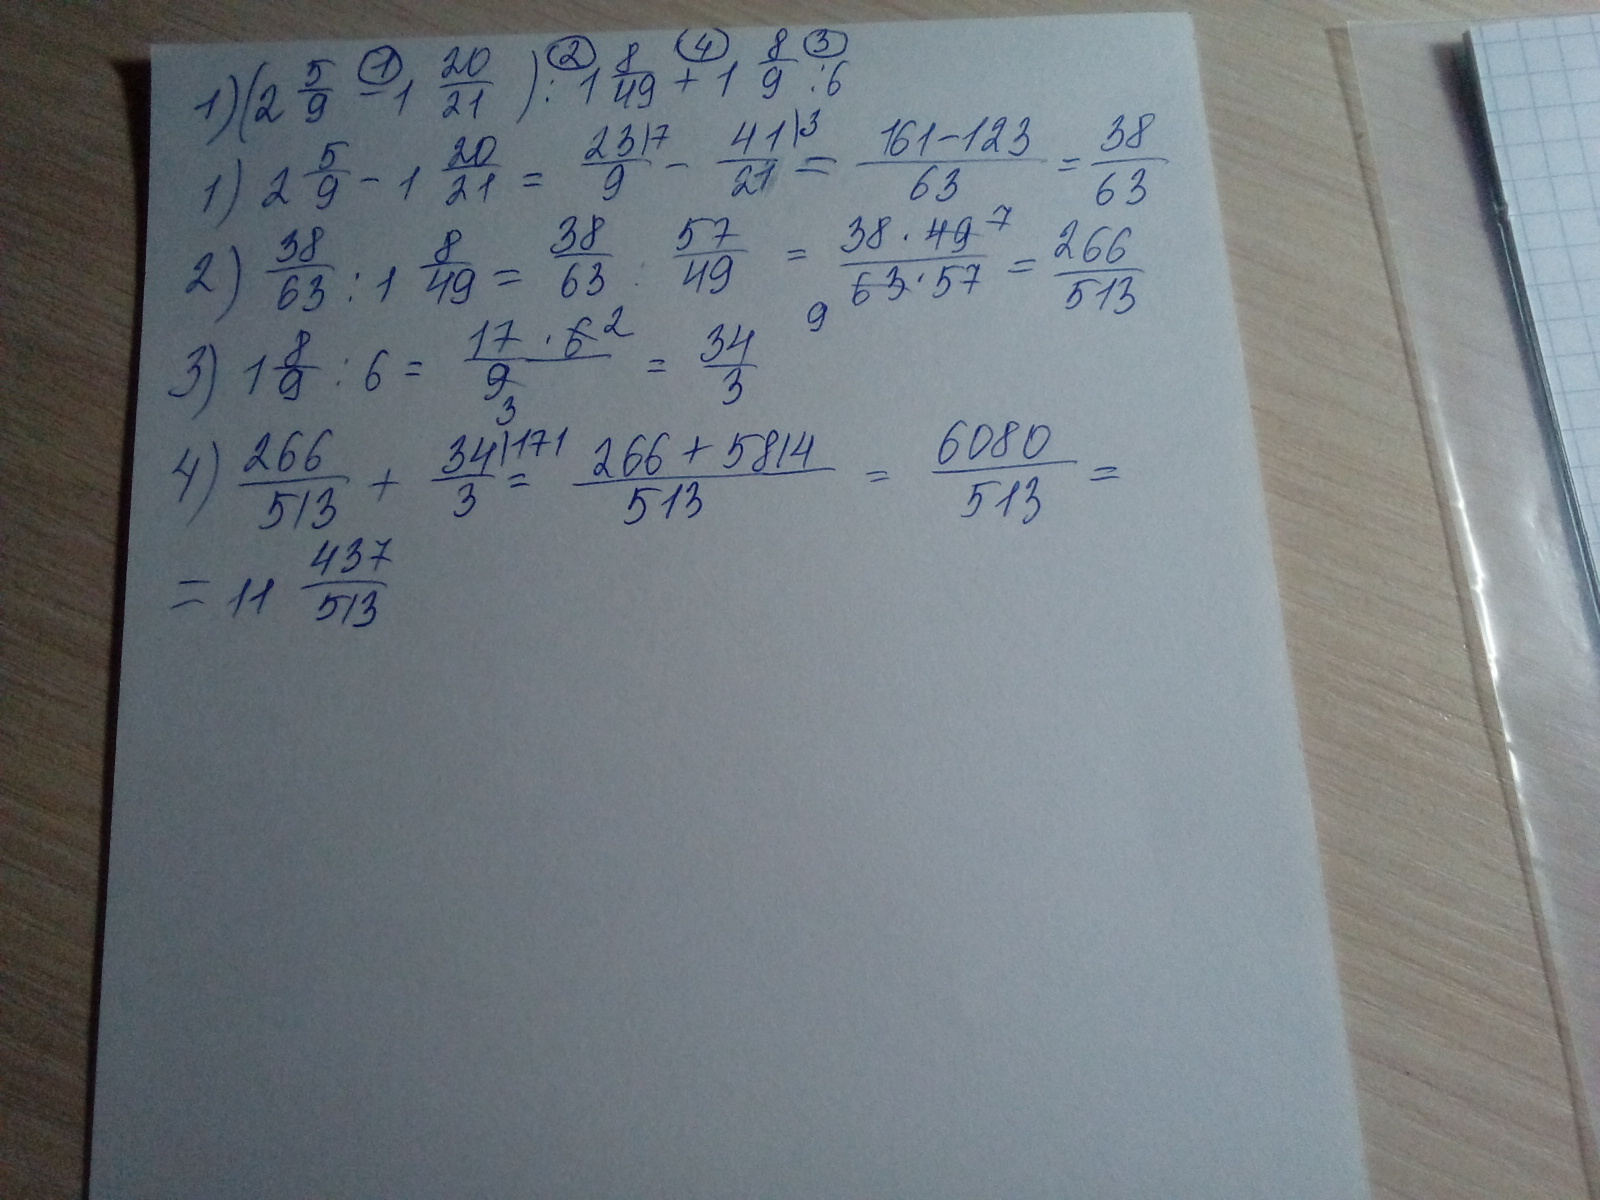 1) (2 5/9 - 1 20/21) : 1 8/49 + 1 8/9 : 6 ① ② ④ ③
1) 2 5/9 - 1 20/21 = 23/9 |7 - 41/21 |3 = (161-123)/63 = 38/63
2) 38/63 : 1 8/49 = 38/63 : 57/49 = (38 · 49 7)/(63 9 · 57) = 266/513
3) 1 8/9 : 6 = (17 · 6 2)/(9 3) = 34/3
4) 266/513 + 34/3 |171 = (266 + 5814)/513 = 6080/513 =
= 11 437/513